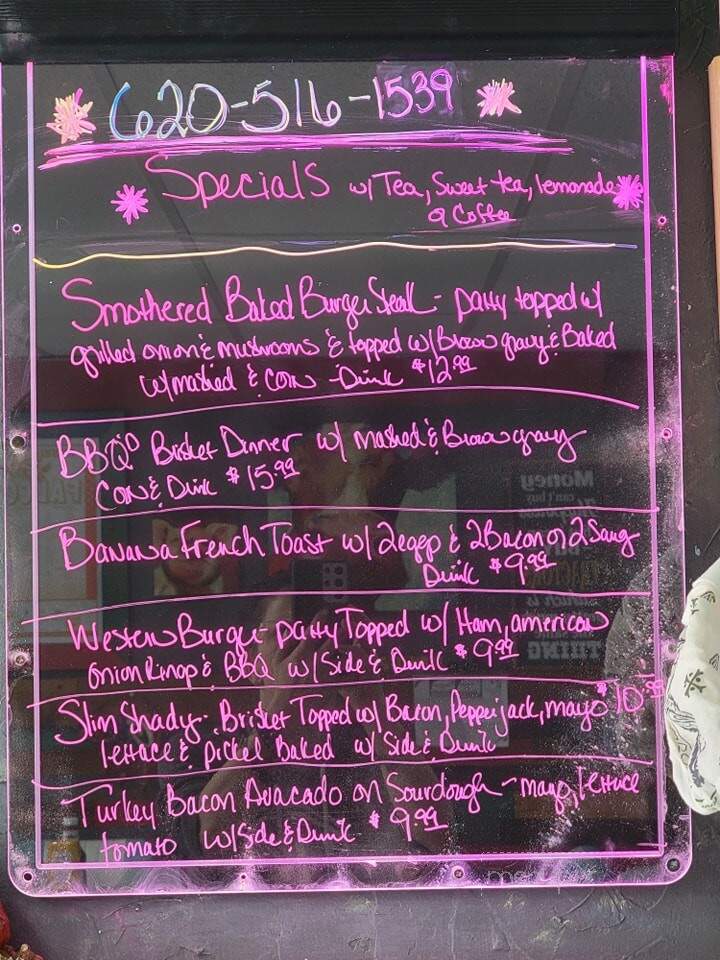 620-516-1539
Specials w/ Tea, Sweet tea, lemonade
a Coffee
Smothered Baked Burger Steak - patty topped w/
grilled onion & mushrooms & topped w/ Brown gravy & Baked
w/ mashed & corn - Drink $12.99
BBQ Brisket Dinner w/ mashed & Brown gravy
Corn & Drink $15.99
Banana French Toast w/ 2 eggs & 2 Bacon or 2 Saug
Drink $9.99
Western Burger - patty Topped w/ Ham, american
Onion Rings & BBQ w/ Side & Drink $9.99
Slim Shady - Brisket Topped w/ Bacon, Pepperjack, mayo $10.99
lettace & pickel Baked w/ Side & Drink
Turkey Bacon Avacado on Sourdough - mayo, lettuce
tomato w/ Side & Drink $9.99
Money
can't buy
THING